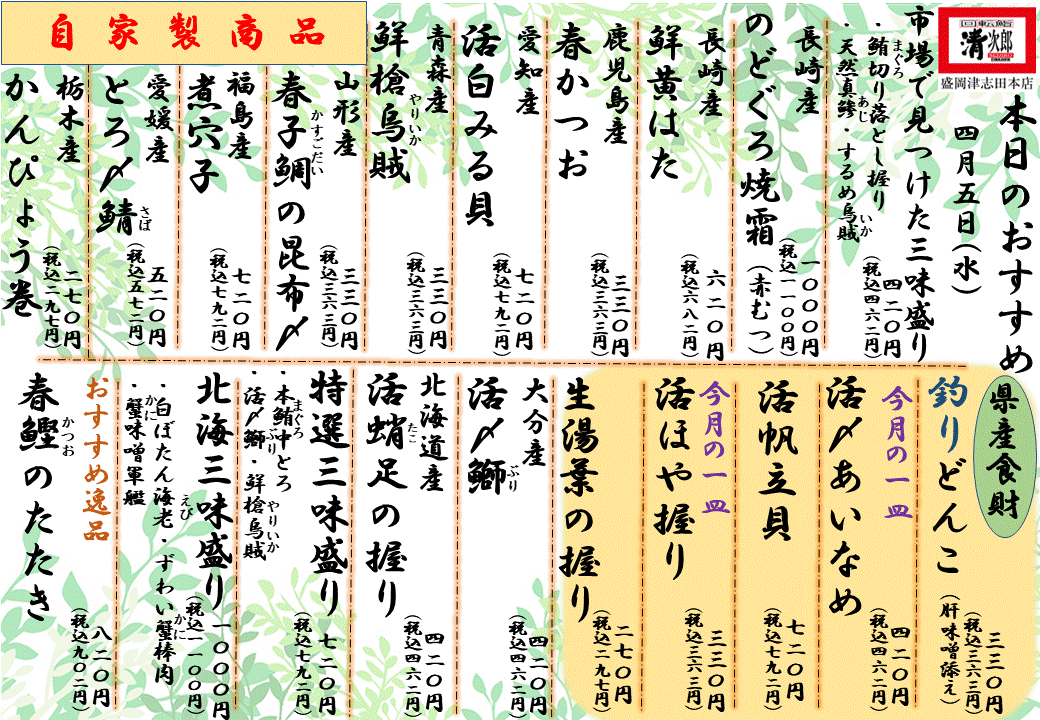 回転鮨
清次郎
SEIJIRO
盛岡津志田本店
本日のおすすめ
四月五日(水)
市場で見つけた三味盛り
・鮪切り落とし握り
まぐろ
・天然真鯵・するめ烏賊
あじ
いか
四二〇円
(税込四六二円)
長崎産
のどぐろ焼霜(赤むつ)
一〇〇〇円
(税込一一〇〇円)
長崎産
鮮黄はた
六二〇円
(税込六八二円)
鹿児島産
春かつお
三三〇円
(税込三六三円)
愛知産
活白みる貝
七二〇円
(税込七九二円)
青森産
鮮槍烏賊
やりいか
三三〇円
(税込三六三円)
自家製商品
山形産
春子鯛の昆布〆
かすごだい
三三〇円
(税込三六三円)
福島産
煮穴子
七二〇円
(税込七九二円)
愛媛産
とろ〆鯖
さば
五二〇円
(税込五七二円)
栃木産
かんぴょう巻
二七〇円
(税込二九七円)
県産食財
釣りどんこ(肝味噌添え)
三三〇円
(税込三六三円)
今月の一皿
活〆あいなめ
四二〇円
(税込四六二円)
活帆立貝
七二〇円
(税込七九二円)
今月の一皿
活ほや握り
三三〇円
(税込三六三円)
生湯葉の握り
二七〇円
(税込二九七円)
大分産
活〆鰤
ぶり
四二〇円
(税込四六二円)
北海道産
活蛸足の握り
たこ
四二〇円
(税込四六二円)
特選三味盛り
・本鮪中とろ
まぐろ
・活〆鰤・鮮槍烏賊
ぶり
やりいか
七二〇円
(税込七九二円)
北海三味盛り
・白ぼたん海老・ずわい蟹棒肉
えび
かに
・蟹味噌軍艦
かに
一〇〇〇円
(税込一一〇〇円)
おすすめ逸品
春鰹のたたき
かつお
八二〇円
(税込九〇二円)